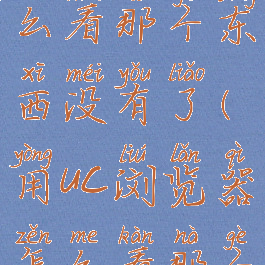 么看那个东
xī méi yǒu liǎo
西没有了(
yòng liú lǎn qì
用uc浏览器
zěn me kàn nà gè
怎么看那个